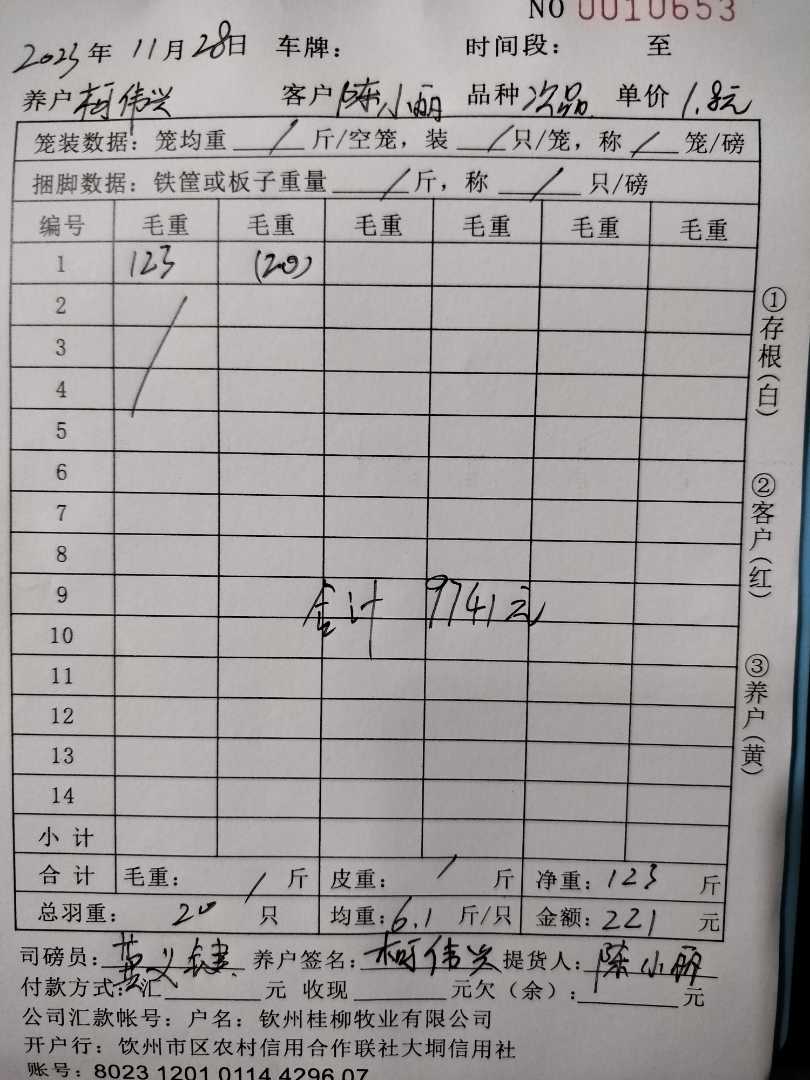 NO 0010653
2023年 11月 28日 车牌： 时间段： 至
养户 柯伟兴 客户 陈小丽 品种 次品 单价 1.8元
笼装数据：笼均重 / 斤/空笼，装 / 只/笼，称 / 笼/磅
捆脚数据：铁筐或板子重量 / 斤，称 / 只/磅
编号 毛重 毛重 毛重 毛重 毛重 毛重
1 123 (20)
2
3
4
5
6
7
8
9 合计 9741元
10
11
12
13
14
小计
合计 毛重： / 斤 皮重： / 斤 净重：123 斤
总羽重： 20 只 均重：6.1 斤/只 金额：221 元
司磅员：黄义健 养户签名：柯伟兴 提货人：陈小丽
付款方式：汇 元 收现 元欠（余）： 元
公司汇款帐号：户名：钦州桂柳牧业有限公司
开户行：饮州市区农村信用合作联社大垌信用社
账号：8023 1201 0114 4296 07
①存根（白）
②客户（红）
③养户（黄）